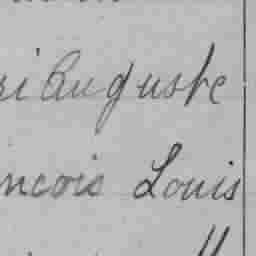 ri Auguste
ncois Louis
"